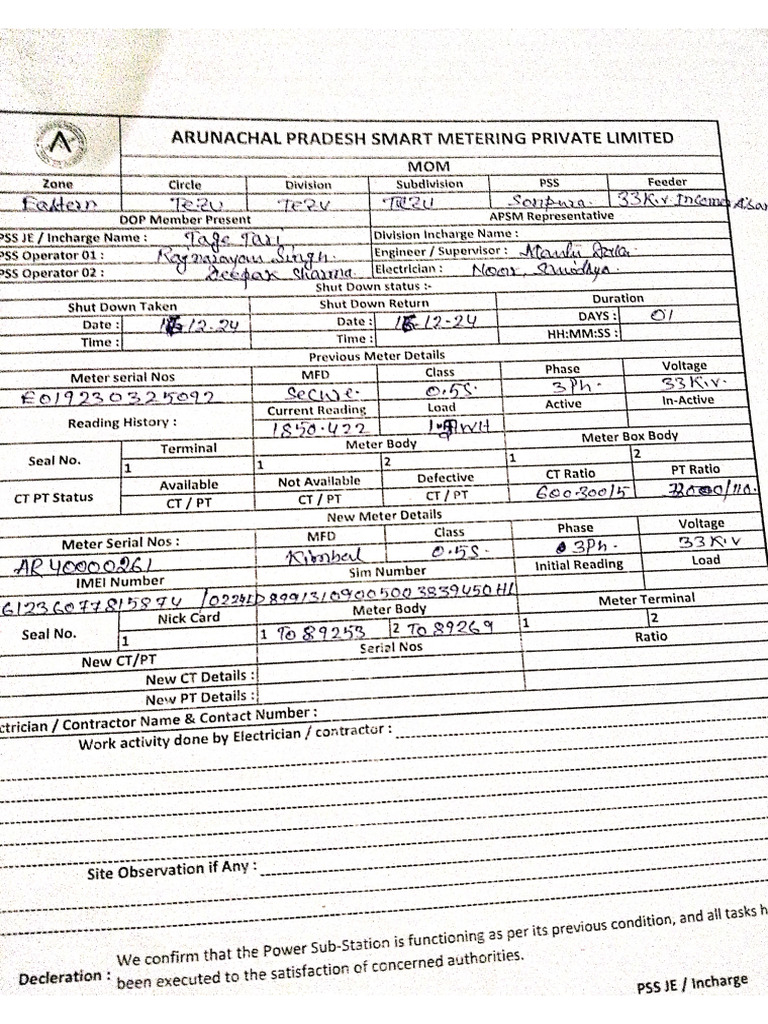 ARUNACHAL PRADESH SMART METERING PRIVATE LIMITED
MOM
Zone Circle Division Subdivision PSS Feeder
Eastern TEZU TEZU TEZU Sonpura 33Kiv. Incomer
DOP Member Present APSM Representative
PSS JE / Incharge Name : Tage Tari Division Incharge Name :
PSS Operator 01 : Rajnarayan Singh Engineer / Supervisor :
PSS Operator 02 : Deepak Sharma Electrician : Noor,
Shut Down status :-
Shut Down Taken Shut Down Return Duration
Date : 12-24 Date : 12-24 DAYS : 01
Time : Time : HH:MM:SS :
Previous Meter Details
Meter serial Nos MFD Class Phase Voltage
E019230325092 Secure 0.5S. 3Ph. 33Kiv.
Reading History : Current Reading Load Active In-Active
1850.422
Seal No. Terminal Meter Body Meter Box Body
1 1 2 1 2
CT PT Status Available Not Available Defective CT Ratio PT Ratio
CT / PT CT / PT CT / PT 600-300/5 /110.
New Meter Details
Meter Serial Nos : MFD Class Phase Voltage
AP40000261 Kimbal 0.5S. 3Ph. 33Kiv
IMEI Number Sim Number Initial Reading Load
61236077815874 89913109005003839450H1
Seal No. Nick Card Meter Body Meter Terminal
1 1 TO 89253 2 TO 89269 1 2
New CT/PT Serial Nos Ratio
New CT Details :
New PT Details :
ctrician / Contractor Name & Contact Number :
Work activity done by Electrician / contractor :
Site Observation if Any :
Decleration : We confirm that the Power Sub-Station is functioning as per its previous condition, and all tasks h
been executed to the satisfaction of concerned authorities.
PSS JE / Incharge